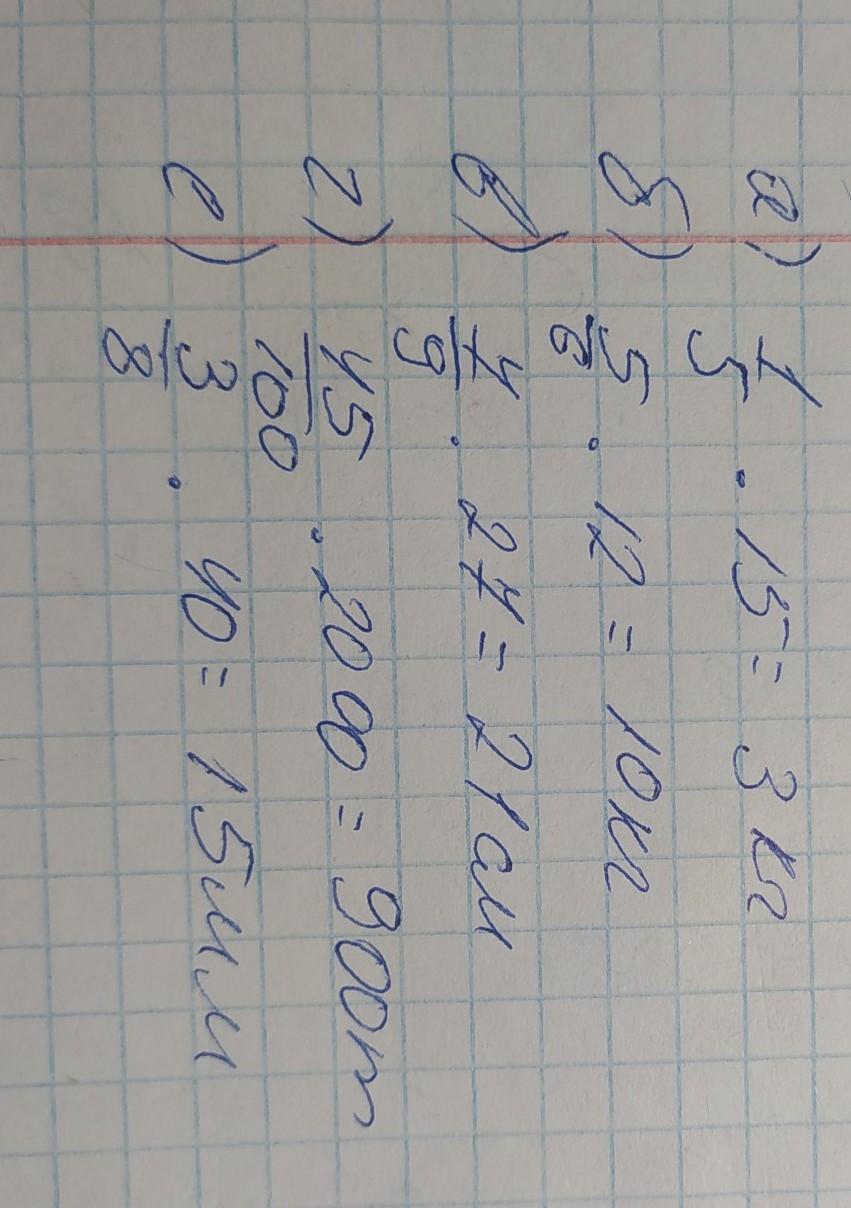 а) 1/5 · 15 = 3 кг
б) 5/6 · 12 = 10 кг
в) 7/9 · 27 = 21 см
г) 45/100 · 2000 = 900 т
е) 3/8 · 40 = 15 мм